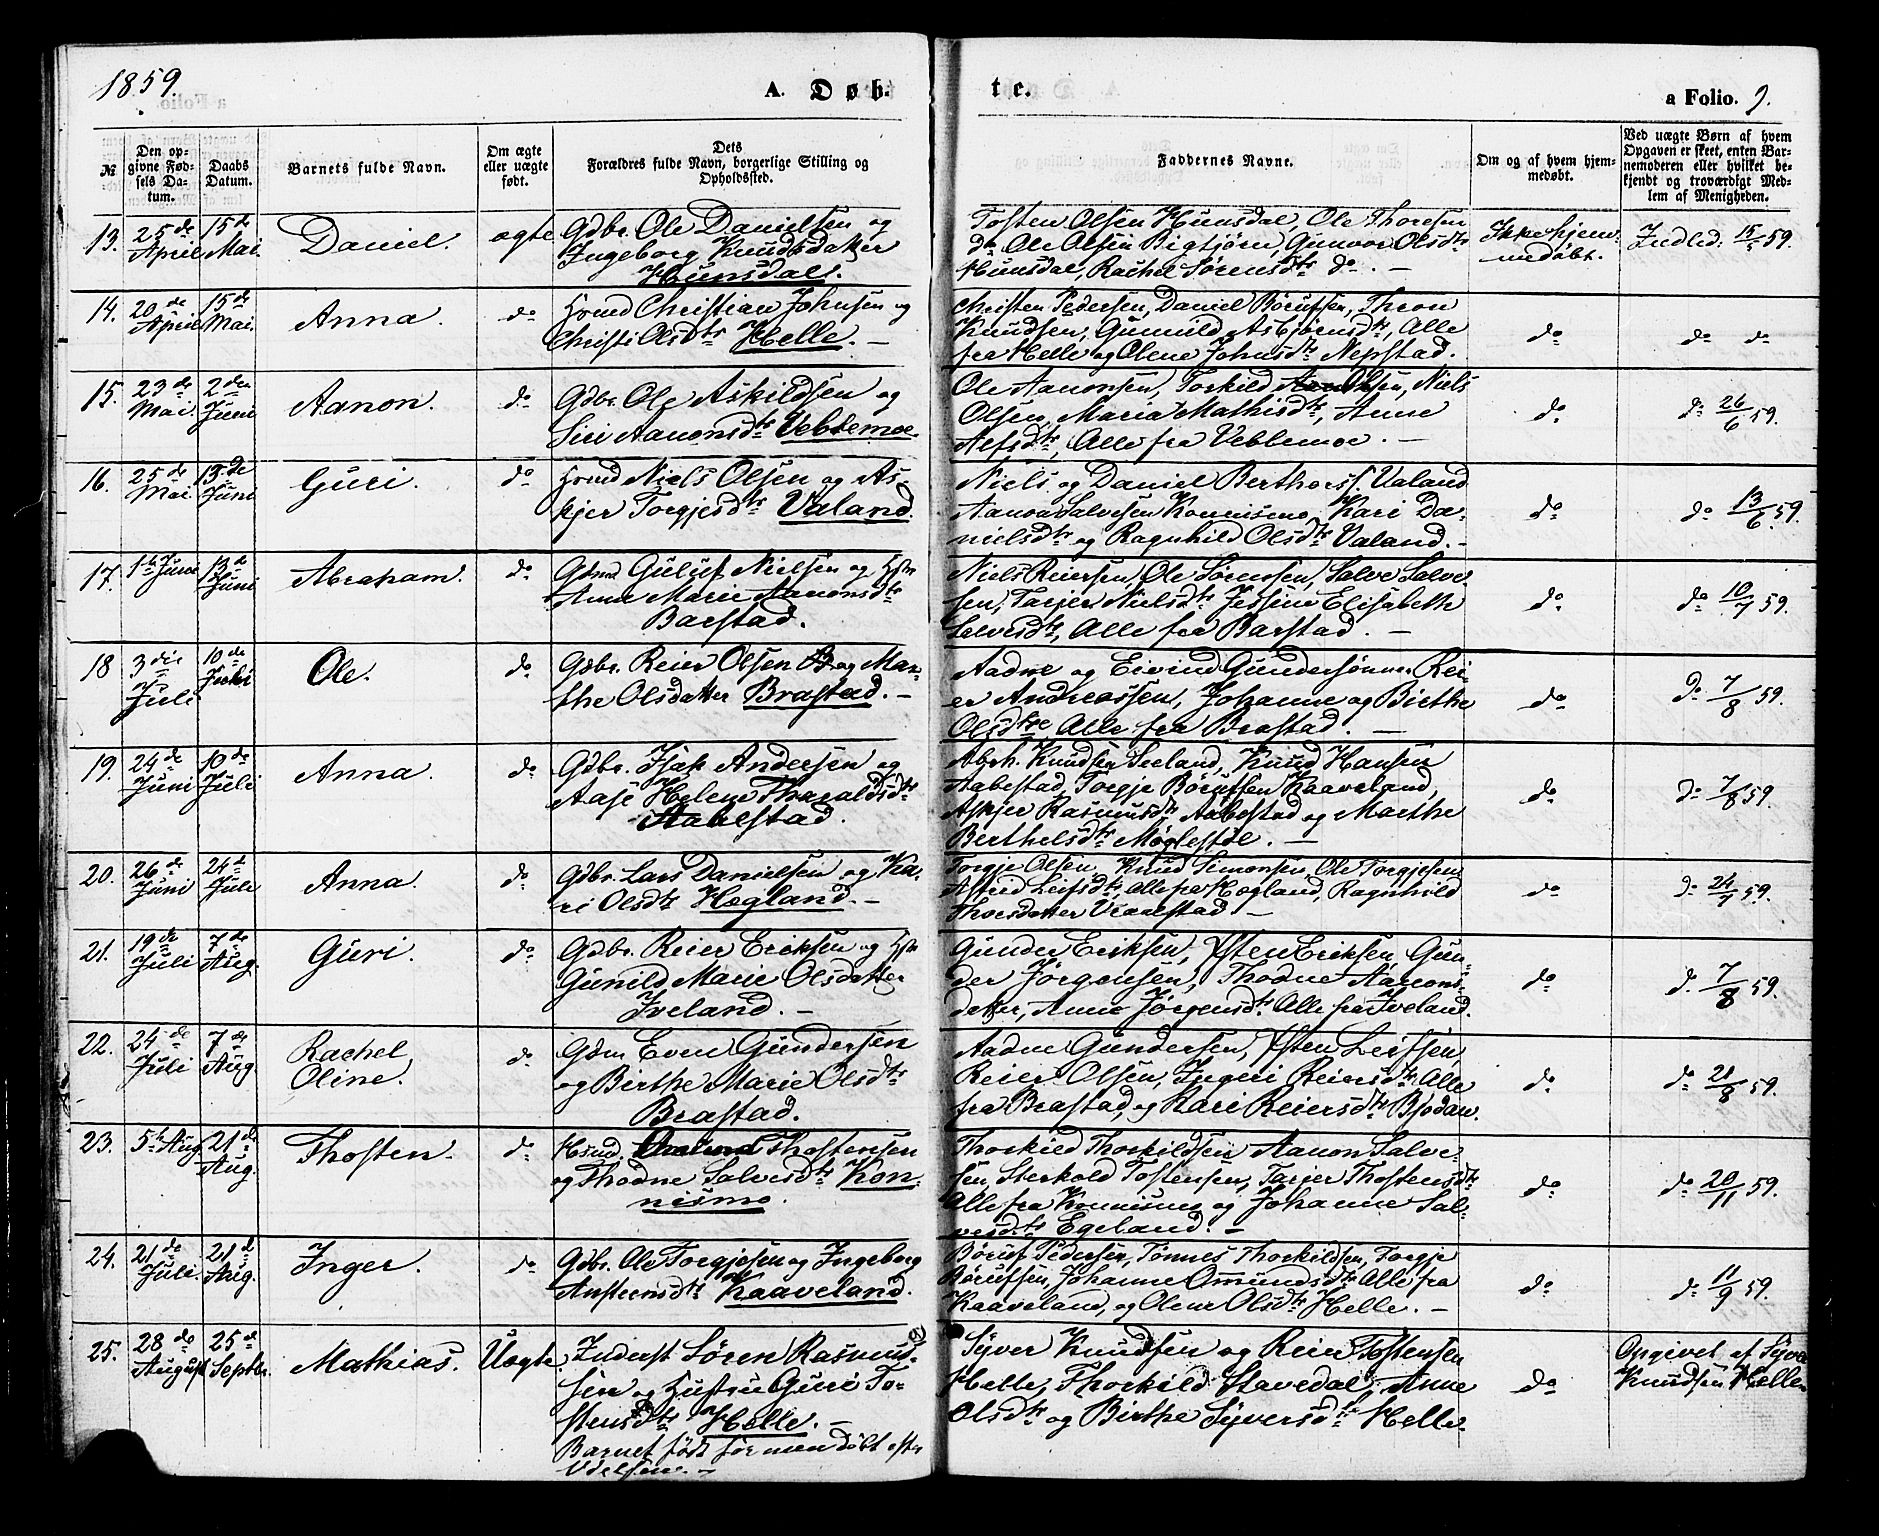 1859.
A. Døb-
te.
a Folio. 9.
№
Den op-
givne Fød-
sels Da-
tum.
Daabs
Datum.
Barnets fulde Navn.
Om ægte
eller uægte
født.
Dets
Forældres fulde Navn, borgerlige Stilling og
Opholdssted.
Faddernes Navne.
Om og af hvem hjem-
medøbt.
Ved uægte Børn af hvem
Opgaven er skeet, enten Bar-
nemoderen eller hvilket be-
kjendt og troværdigt Med-
lem af Menigheden.
13.
25 de
April
15 de
Mai.
Daniel.
ægte
Gdbr. Ole Danielsen og
Ingeborg Knudsdatter
Hunsdal.
Tosten Olsen Hunsdal, Ole Thoresen
do, Ole Olsen Bigtjørn, Gunvor Olsdtr
Hunsdal, Rachel Sørensdtr do. —
Ikke hjem-
medøbt.
Indled. 15/5 59.
14.
20 de
April
15 de
Mai.
Anna.
do
Hmd Christian Johnsen og
Christi Olsdtr Helle. —
Christen Pedersen, Daniel Børufsen, Theon
Knudsen, Gunnild Asbjørnsdtr, Alle
fra Helle og Olene Johnsdtr Nepstad.
do
do do
15.
23 de
Mai.
2 den
Juni
Aanon.
do
Gdbr. Ole Askildsen og
Siri Aanonsdtr Vehlemoe.
Ole Aanonsen, Torkild Olsen, Niels
Olsen, Maria Mathisdtr, Anne
Alfsdtr, Alle fra Vehlemoe. —
do
do 26/6 59.
16.
25 de
Mai
13 de
Juni
Guri.
do
Hmd Niels Olsen og As-
kjer Torgjesdtr Valand.
Niels og Daniel Berthors S. Valand
Aanon Salvesen Konnismo, Kari Da-
nielsdtr og Ragnhild Olsdtr Valand. —
do
do 13/6 59.
17.
1ste Juni
13 d
Juni
Abraham.
do
Gdmd Guluf Nielsen og Hstr
Anne Marie Aanonsdtr
Barstad.
Niels Reiersen, Ole Sørensen, Salve Salve-
sen, Tarjer Nielsdtr, Jessine Elisabeth
Salvesdtr, Alle fra Barstad. —
do
do 10/7 59.
18
3 die
Juli
10 de
Juli
Ole.
do
Gdbr. Reier Olsen og Mar-
the Olsdatter Brastad. —
Aadne og Eivind Gundersønner Rei-
er Andreassen, Johanne og Birthe
Olsdtre Alle fra Brastad. —
do
Do 7/8 59.
19.
24 de
Juni
10 de
Juli
Anna.
do
Gdbr. Isak Andersen og
Aase Helene Tharaldsdtr
Aabestad.
Abrh. Knudsen Seeland, Knud Hansen
Aabestad, Torgje Børufsen Kaaveland,
Askjer Rasmusdtr Aabestad og Marthe
Berthelsdtr Møglestøl. —
do
do 7/8 59.
20.
26 de
Juni
24 d
Juli
Anna.
do
Gdbr. Lars Danielsen og Ka-
ri Olsdtr Hægland. —
Torgje Olsen, Knud Simonsen, Ole Torgjesen
Astrid Leifsdtr, alle fra Hægland, Ragnhild
Thorsdatter Vraalstad —
do
do 24/7 59.
21.
19 de
Juli
7 de
Aug.
Guri.
do
Gdbr. Reier Eriksen og Hstr
Gunild Marie Olsdatter
Iveland. —
Gunder Eriksen, Østen Eriksen, Gun-
der Jørgensen, Thodne Aanons-
datter, Anne Jørgensdtr Alle fra Iveland.
do
do 7/8 59.
22.
24 de
Juli
7 de
Aug
Rachel
Oline.
do
Gdm Even Gundersen
og Birthe Marie Olsdtr
Brastad.
Aadne Gundersen, Østen Leifsen
Reier Olsen, Ingeri Reiersdtr, Alle
fra Brastad, og Kari Reiersdtr Bjodan.
do
do 21/8 59.
23.
5te Aug.
21 de
Aug.
Thosten.
do
Hsmd. Thostensen
og Thodne Salvesdtr Kon-
nismo.
Thorkild Thorkildsen Aanon Salve-
sen, Sterkold Tostensen, Tarjer Thostensdtr
Alle fra Konnismo og Johanne Sal-
vesdtr Egeland. —
do
do 20/11 59.
24.
21 de
Juli.
21 d
Aug.
Inger.
do
Gdbr. Ole Torgjesen og Ingeborg
Anstensdtr Kaaveland.
Børuf Pedersen, Tønnes Thorkildsen, Torgje
Børufsen, Johanne Omundsdtr Alle fra
Kaaveland, og Olene Olsdtr Helle. —
do
do 11/9 59.
25.
28 de
August
25 d
Septbr.
Mathias.
Uægte.
Inderst Søren Rasmus-
sen og Hustru Guri To-
stensdtr Helle. —
Barnet født før men døbt efter
Vielsen. —
Syver Knudsen og Reier Tostensen
Helle, Thorkild Stavedal, Anne
Olsdtr og Birthe Syversdtr Helle.
do
Opgivet af Syver
Knudsen Helle